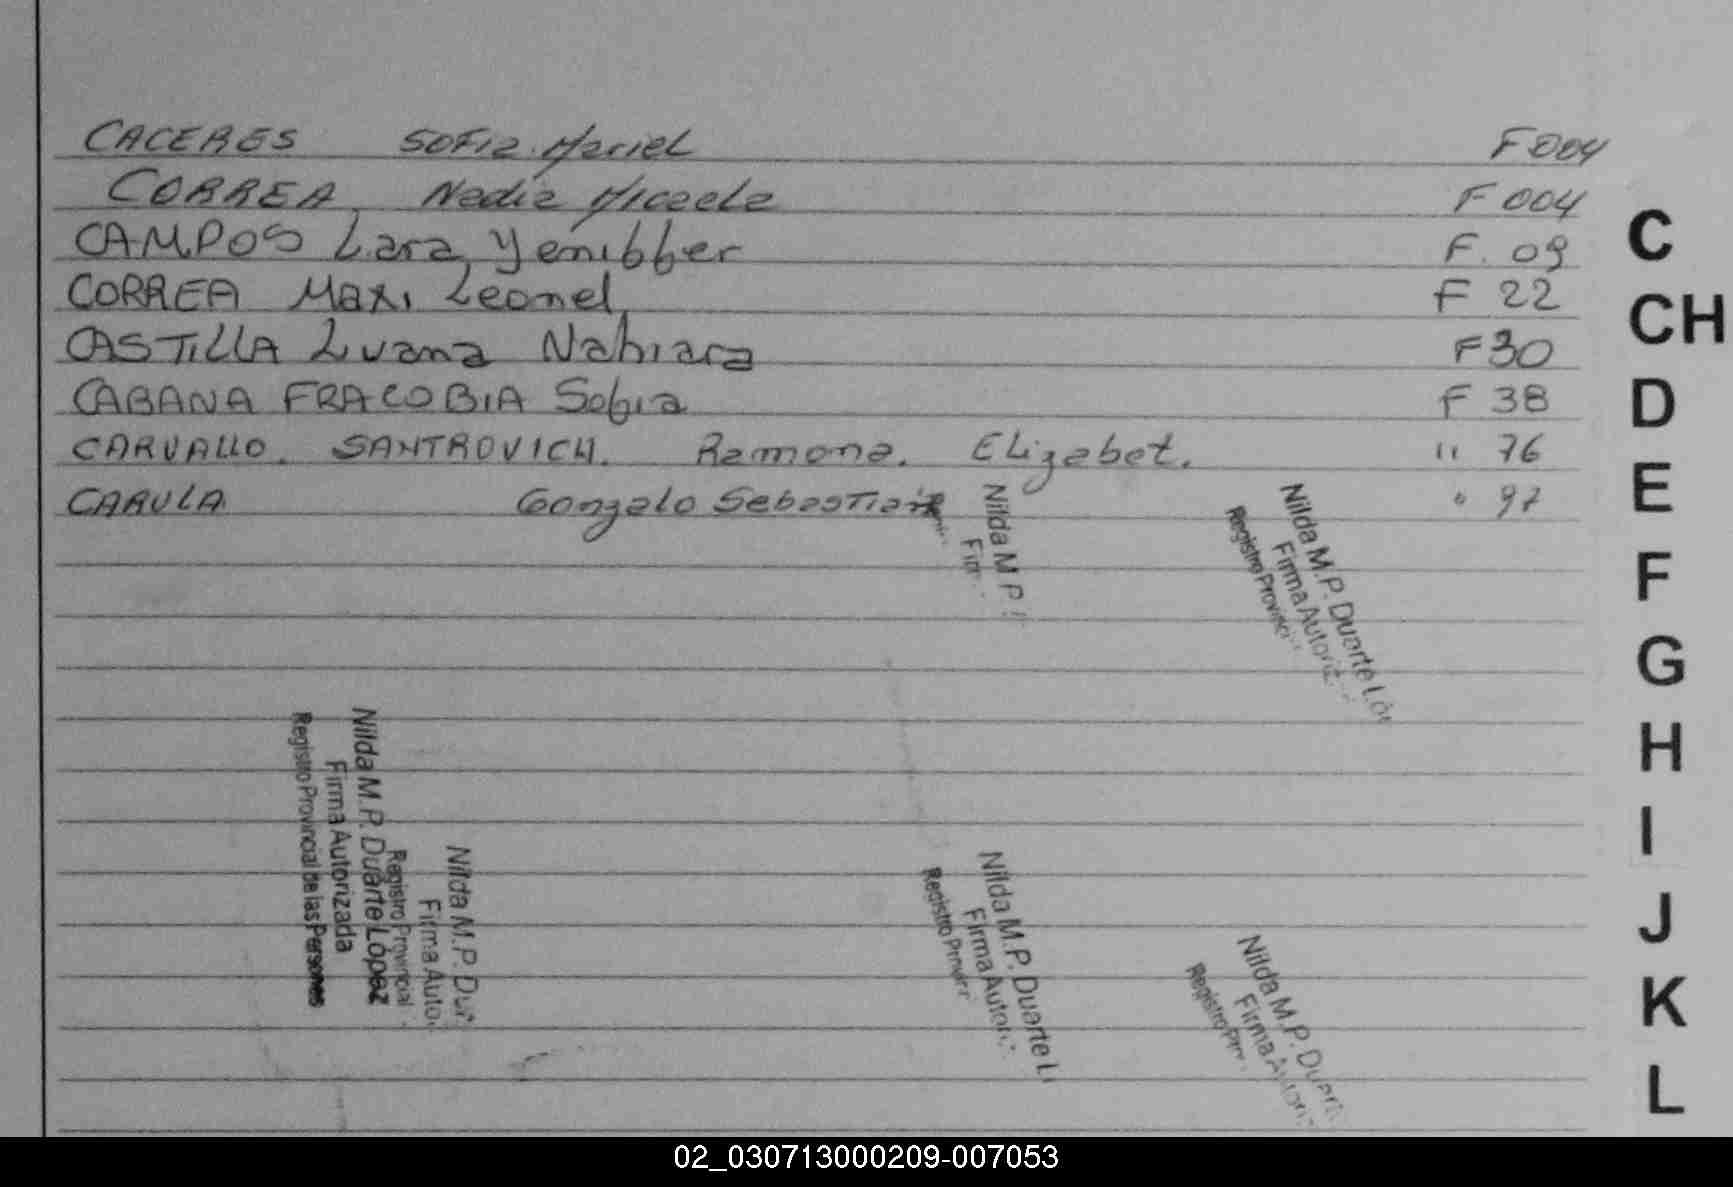 CACERES Sofia Mariel F 004
CORREA Nadia Micaela F 004
CAMPOS Lara Yenibber F. 09
CORREA Maxi Leonel F 22
CASTILLA Luana Nahiara F 30
CABANA FRACOBIA Sofia F 38
CARVALLO. SANTROVICH. Ramona. Elizabet. " 76
CARULA Gonzalo Sebastian " 97
Nilda M.P.
Nilda M.P. Duarte Ló
Firma Autoriz
Registro Provinci
Nilda M.P. Duarte López
Firma Autorizada
Registro Provincial de las Personas
Nilda M.P. Du
Firma Auto
Registro Provincial
Nilda M.P. Duarte L
Firma Autori
Registro Provi
Nilda M.P. Duart
Firma Autori
Registro Pr
C
CH
D
E
F
G
H
I
J
K
L
02_030713000209-007053